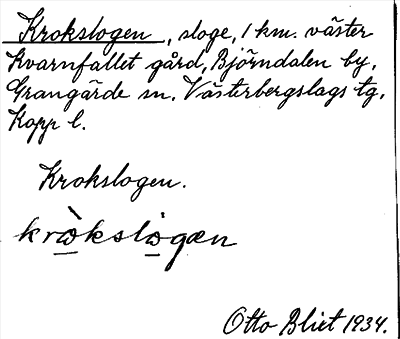 Krokslogen, sloge, 1 km. väster
Kvarnfallet gård, Björndalen by,
Grangärde sn. Västerbergslags tg,
Kopp l.
Krokslogen.
Otto Blixt 1934.